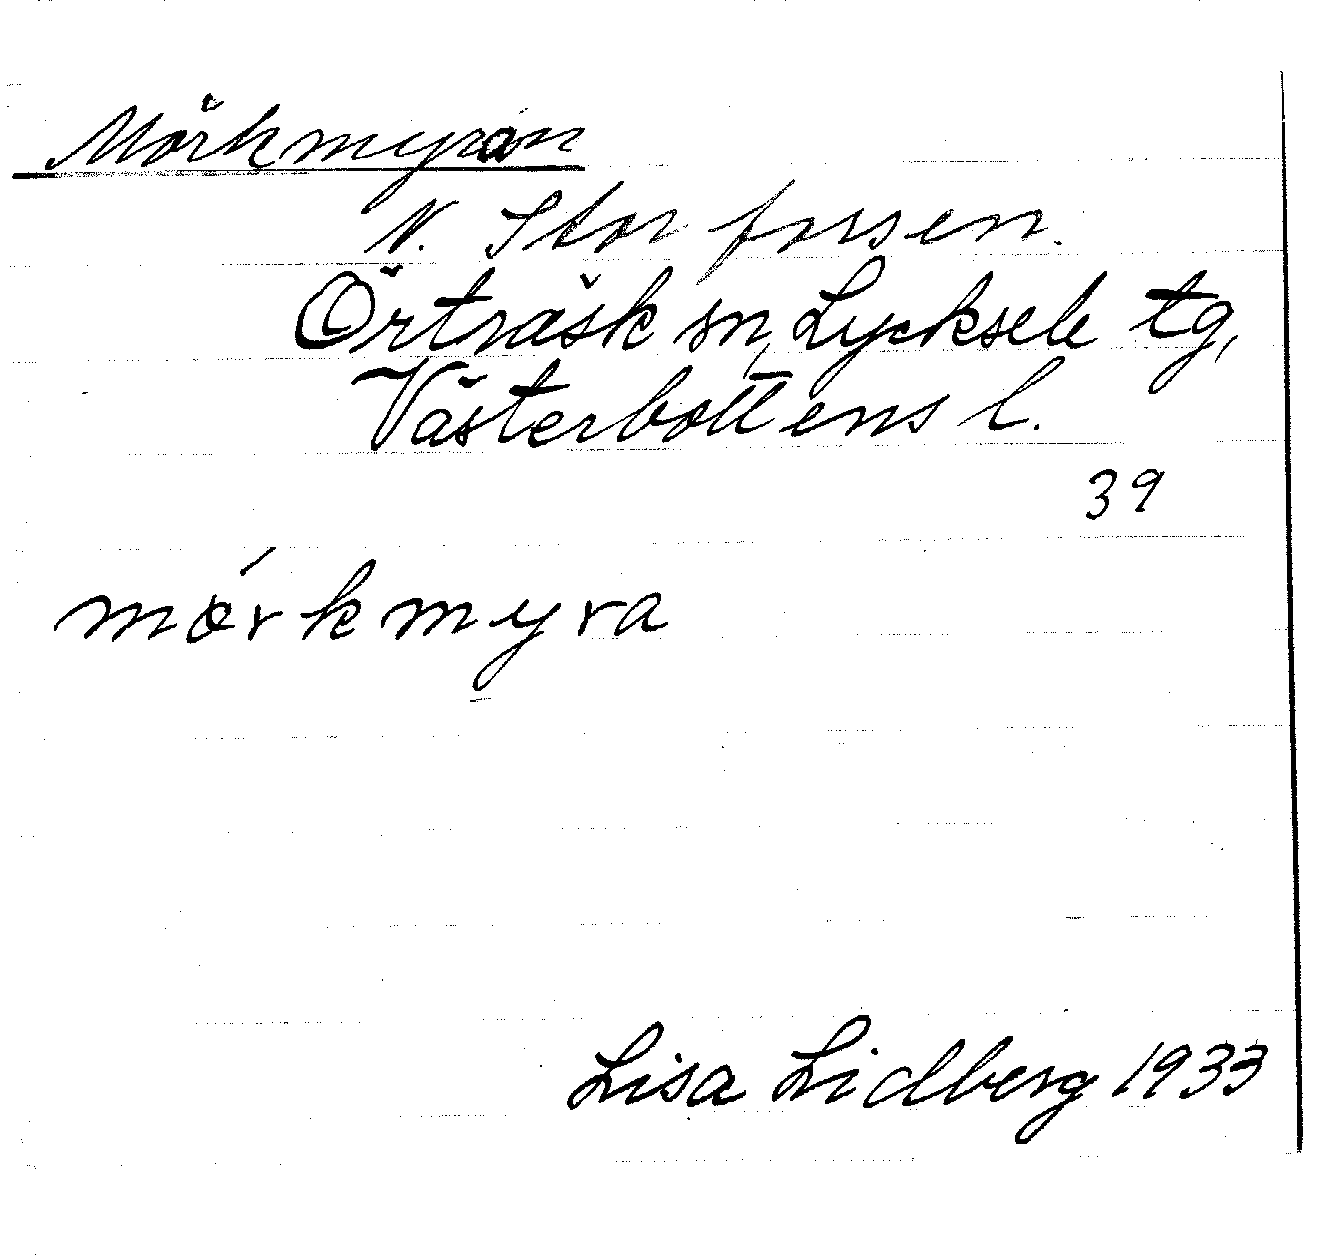 Mörkmyran
N. Storforsen.
Örträsk sn, Lycksele tg,
Västerbottens l.
39
mǿrkmyra
Lisa Lidberg 1933